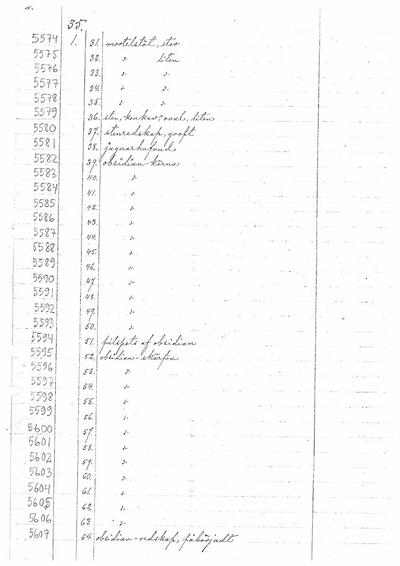 35.
5574 1. 31. mortelstöt, stor
5575 32. " liten
5576 33. " "
5577 34. " "
5578 35. " "
5579 36. sten, konkav; oval, liten
5580 37. stenredskap, groft
5581 38. jaguarhufvud
5582 39. obsidian-kärna
5583 40. "
5584 41. "
5585 42. "
5586 43. "
5587 44. "
5588 45. "
5589 46. "
5590 47. "
5591 48. "
5592 49. "
5593 50. "
5594 51. pilspets af obsidian
5595 52. obsidian-skärfva
5596 53. "
5597 54. "
5598 55. "
5599 56. "
5600 57. "
5601 58. "
5602 59. "
5603 60. "
5604 61. "
5605 62. "
5606 63. "
5607 64. obsidian-redskap, påbörjadt